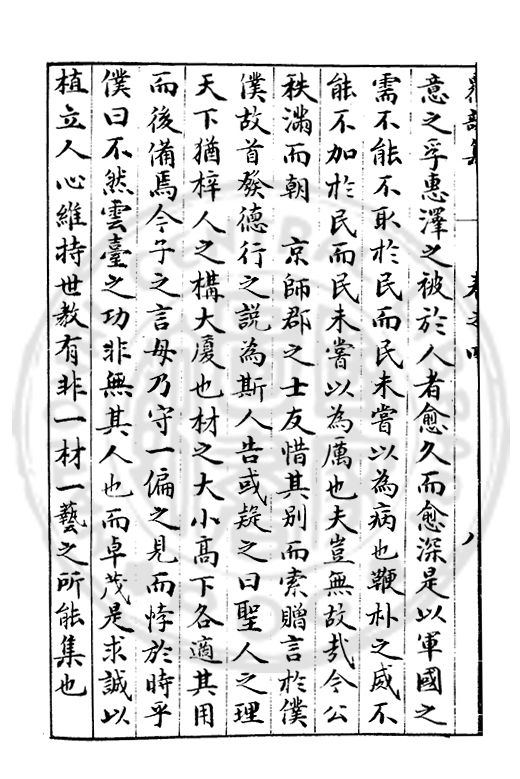 意之孚惠澤之被於人者愈久而愈深是以軍國之
需不能不取於民而民未嘗以為病也鞭朴之威不
能不加於民而民未嘗以為厲也夫豈無故哉今公
秩滿而朝　京師郡之士友惜其別而索贈言於僕
僕故首發德行之說為斯人告或疑之曰聖人之理
天下猶梓人之構大廈也材之大小高下各適其用
而後備焉今子之言毋乃守一偏之見而悖於時乎
僕曰不然雲臺之功非無其人也而卓茂是求誠以
植立人心維持世教有非一材一藝之所能集也